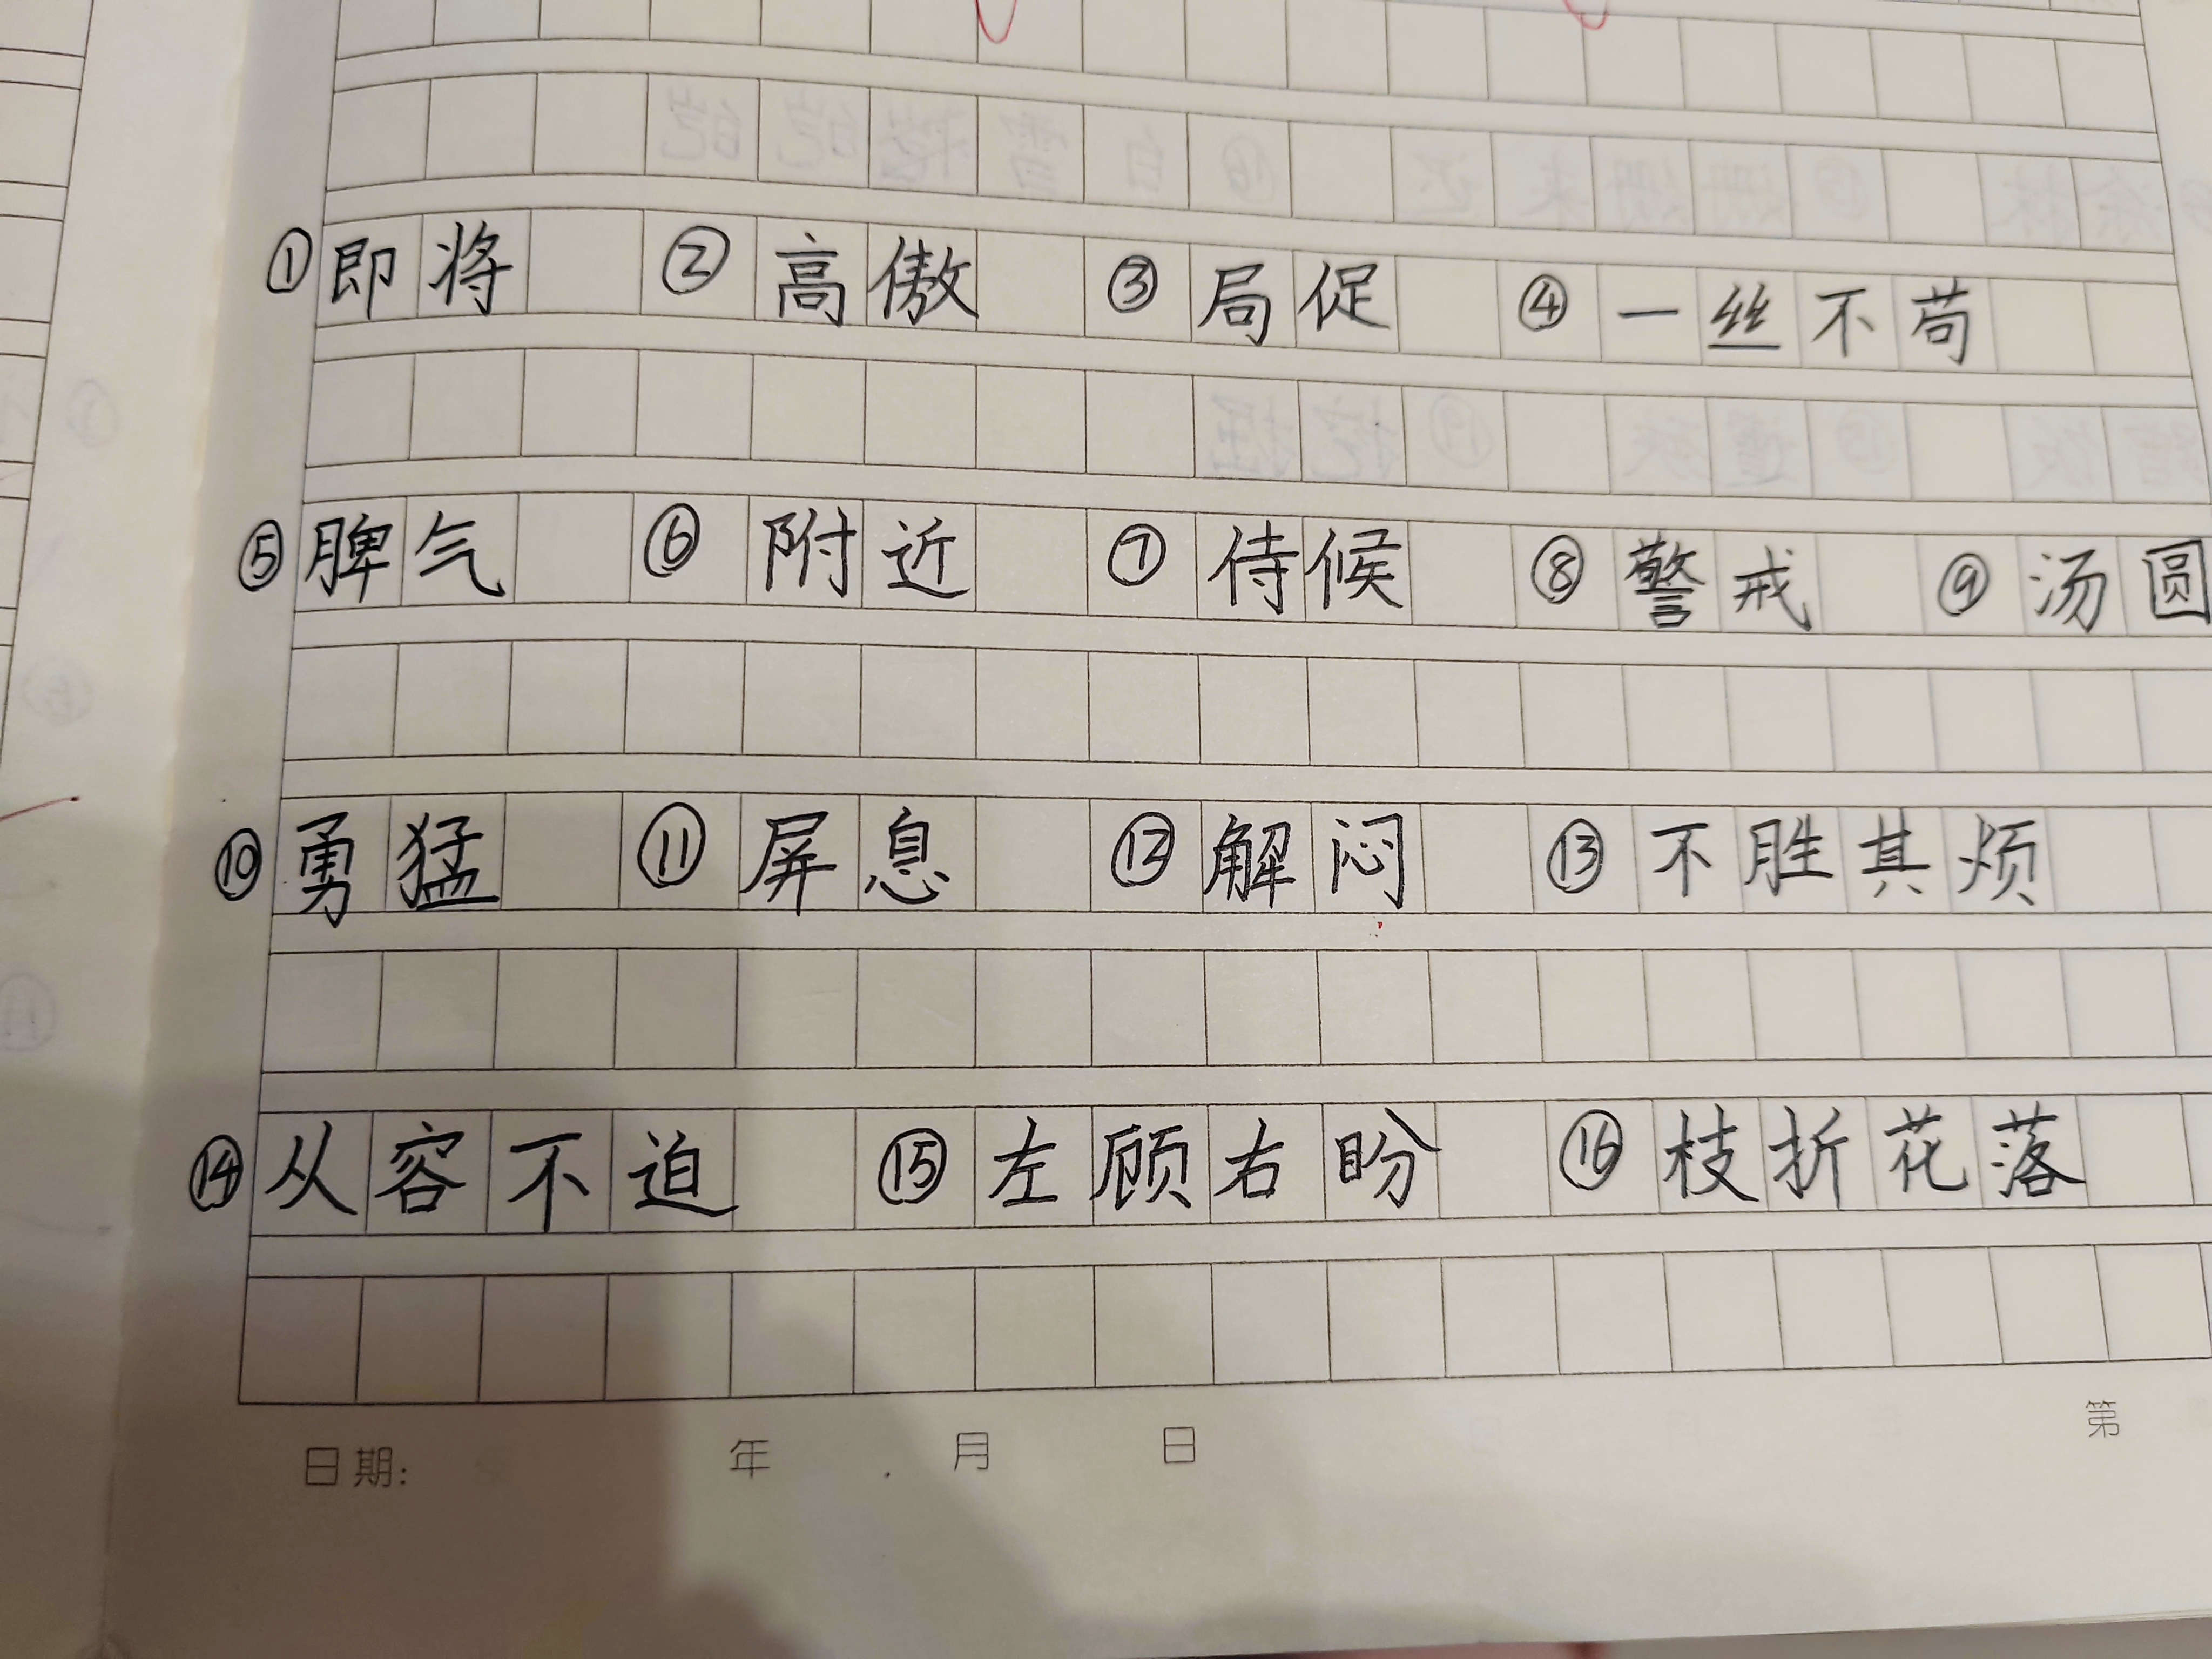 ①即将 ②高傲 ③局促 ④一丝不苟
⑤脾气 ⑥附近 ⑦侍候 ⑧警戒 ⑨汤圆
⑩勇猛 ⑪屏息 ⑫解闷 ⑬不胜其烦
⑭从容不迫 ⑮左顾右盼 ⑯枝折花落
日期: 年 月 日 第